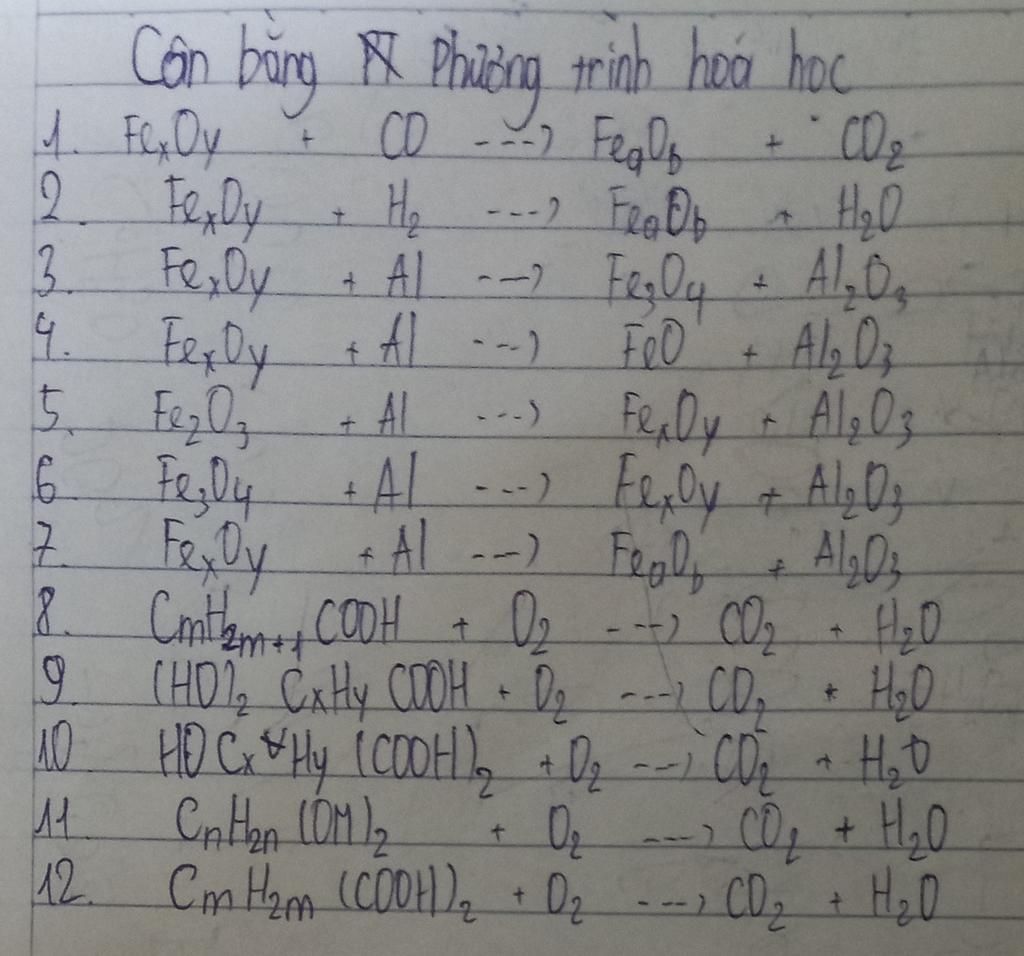 Cân bằng Phương trình hoá học
1. FexOy + CO ---> FeaOb + CO2
2. FexOy + H2 ---> FeaOb + H2O
3. FexOy + Al ---> Fe3O4 + Al2O3
4. FexOy + Al ---> FeO + Al2O3
5. Fe2O3 + Al ---> FexOy + Al2O3
6 Fe3O4 + Al ---> FexOy + Al2O3
7. FexOy + Al ---> FeaOb + Al2O3
8. CmH2m+1 COOH + O2 ---> CO2 + H2O
9 (HO)2 CxHy COOH + O2 ---> CO2 + H2O
10 HO CxHy (COOH)2 + O2 ---> CO2 + H2O
11 CnH2n (OH)2 + O2 ---> CO2 + H2O
12. CmH2m (COOH)2 + O2 ---> CO2 + H2O